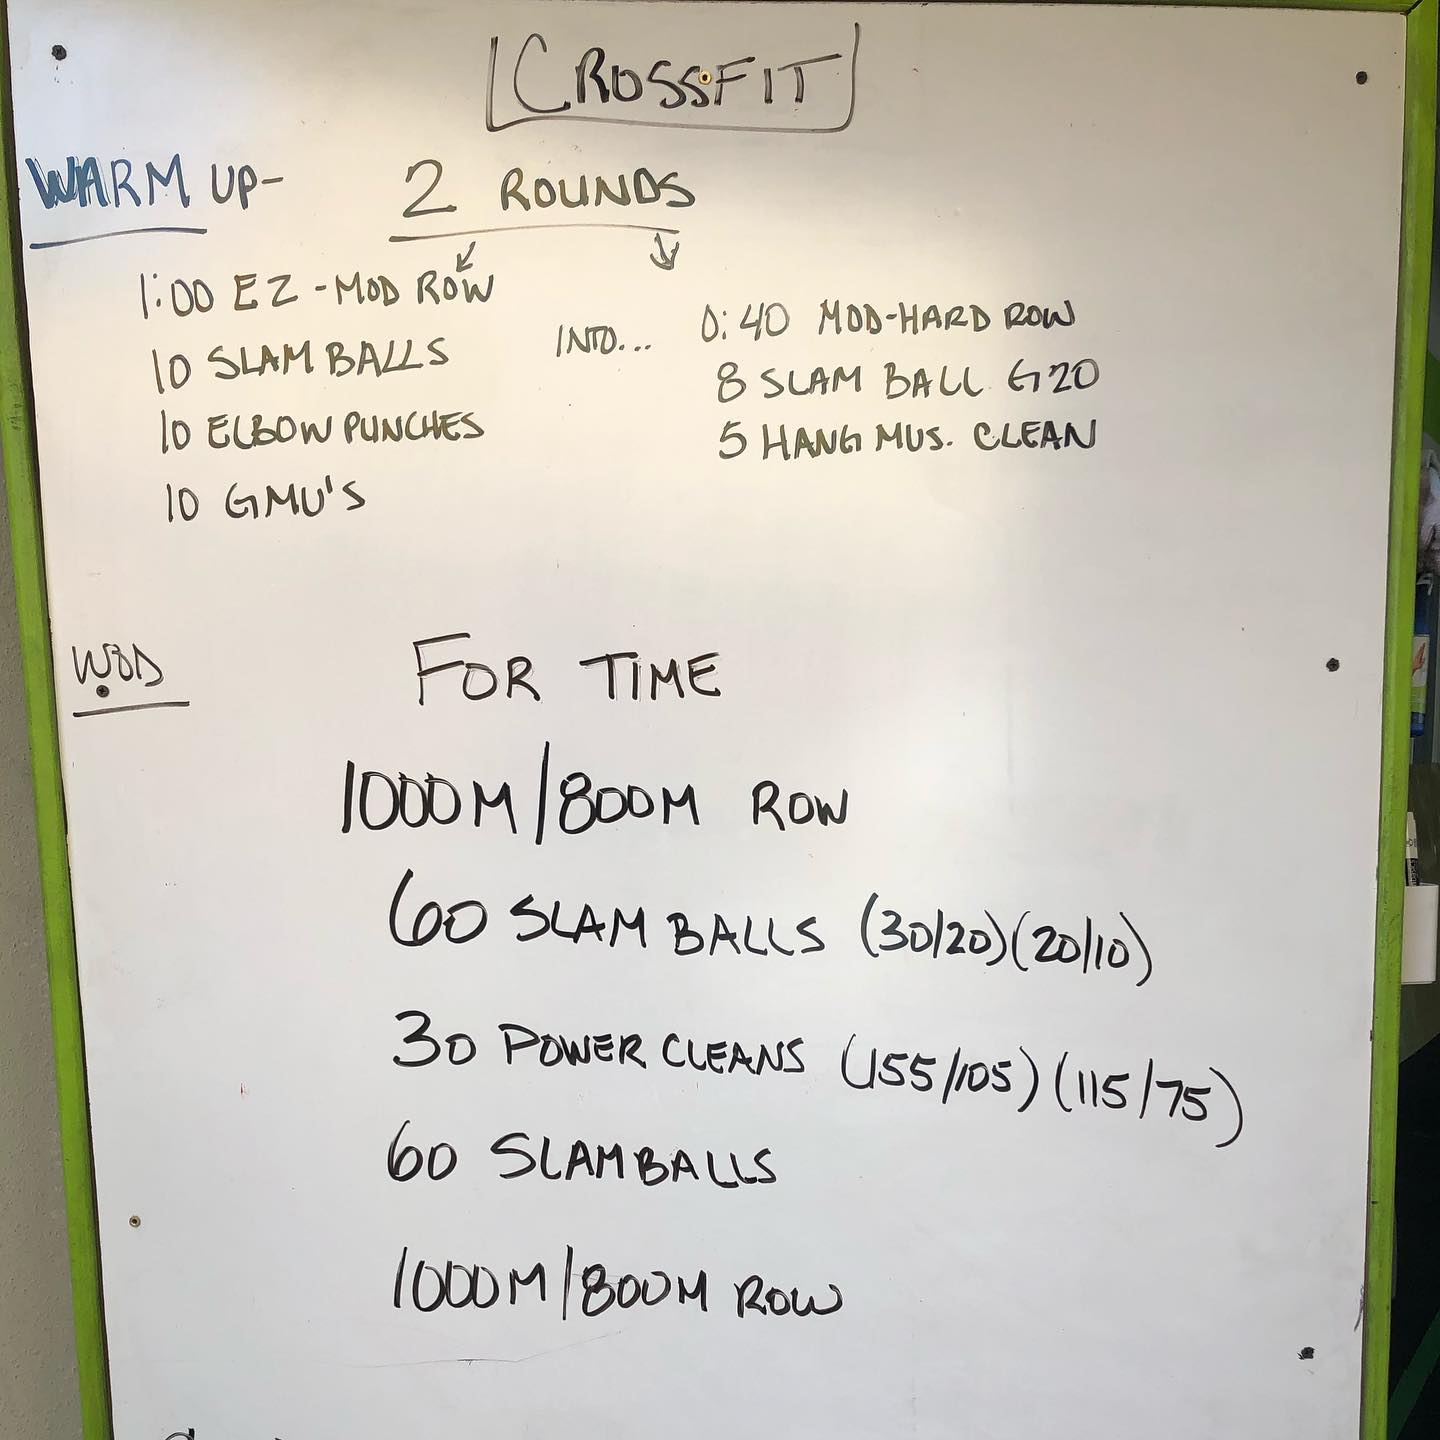 CROSSFIT
WARM UP- 2 ROUNDS
1:00 EZ-MOD ROW
10 SLAM BALLS
10 ELBOW PUNCHES
10 GMU'S
INTO...
0:40 MOD-HARD ROW
8 SLAM BALL G20
5 HANG MUS. CLEAN
WOD
FOR TIME
1000M/800M ROW
60 SLAM BALLS (30/20)(20/10)
30 POWER CLEANS (155/105)(115/75)
60 SLAMBALLS
1000M/800M ROW